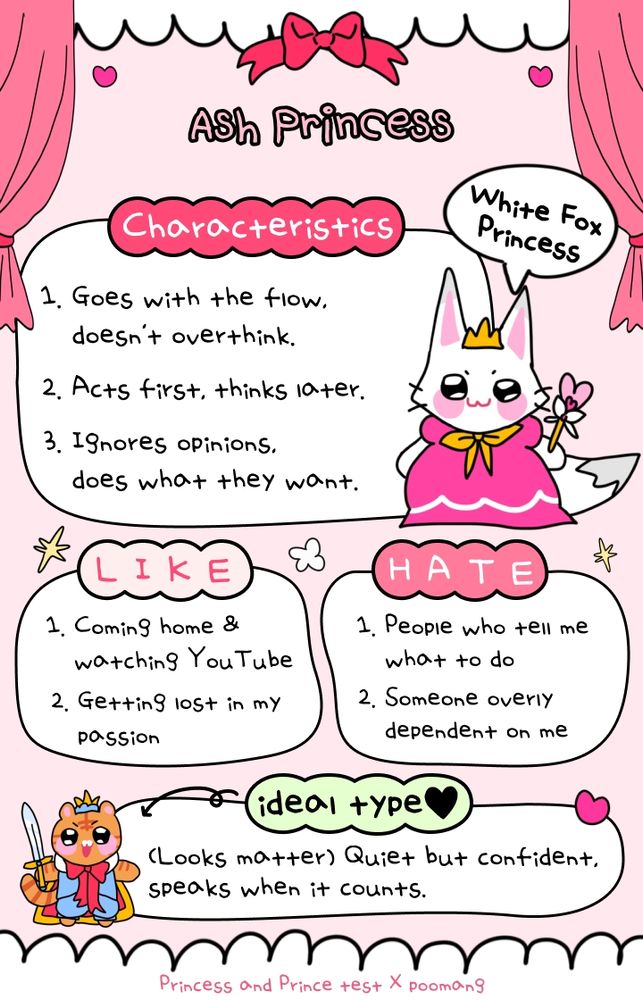 Ash Princess
White Fox
Princess
Characteristics
1. Goes with the flow,
doesn't overthink.
2. Acts first, thinks later.
3. Ignores opinions,
does what they want.
LIKE
1. Coming home &
watching YouTube
2. Getting lost in my
passion
HATE
1. People who tell me
what to do
2. Someone overly
dependent on me
ideal type♥
(Looks matter) Quiet but confident,
speaks when it counts.
Princess and Prince test X poomang